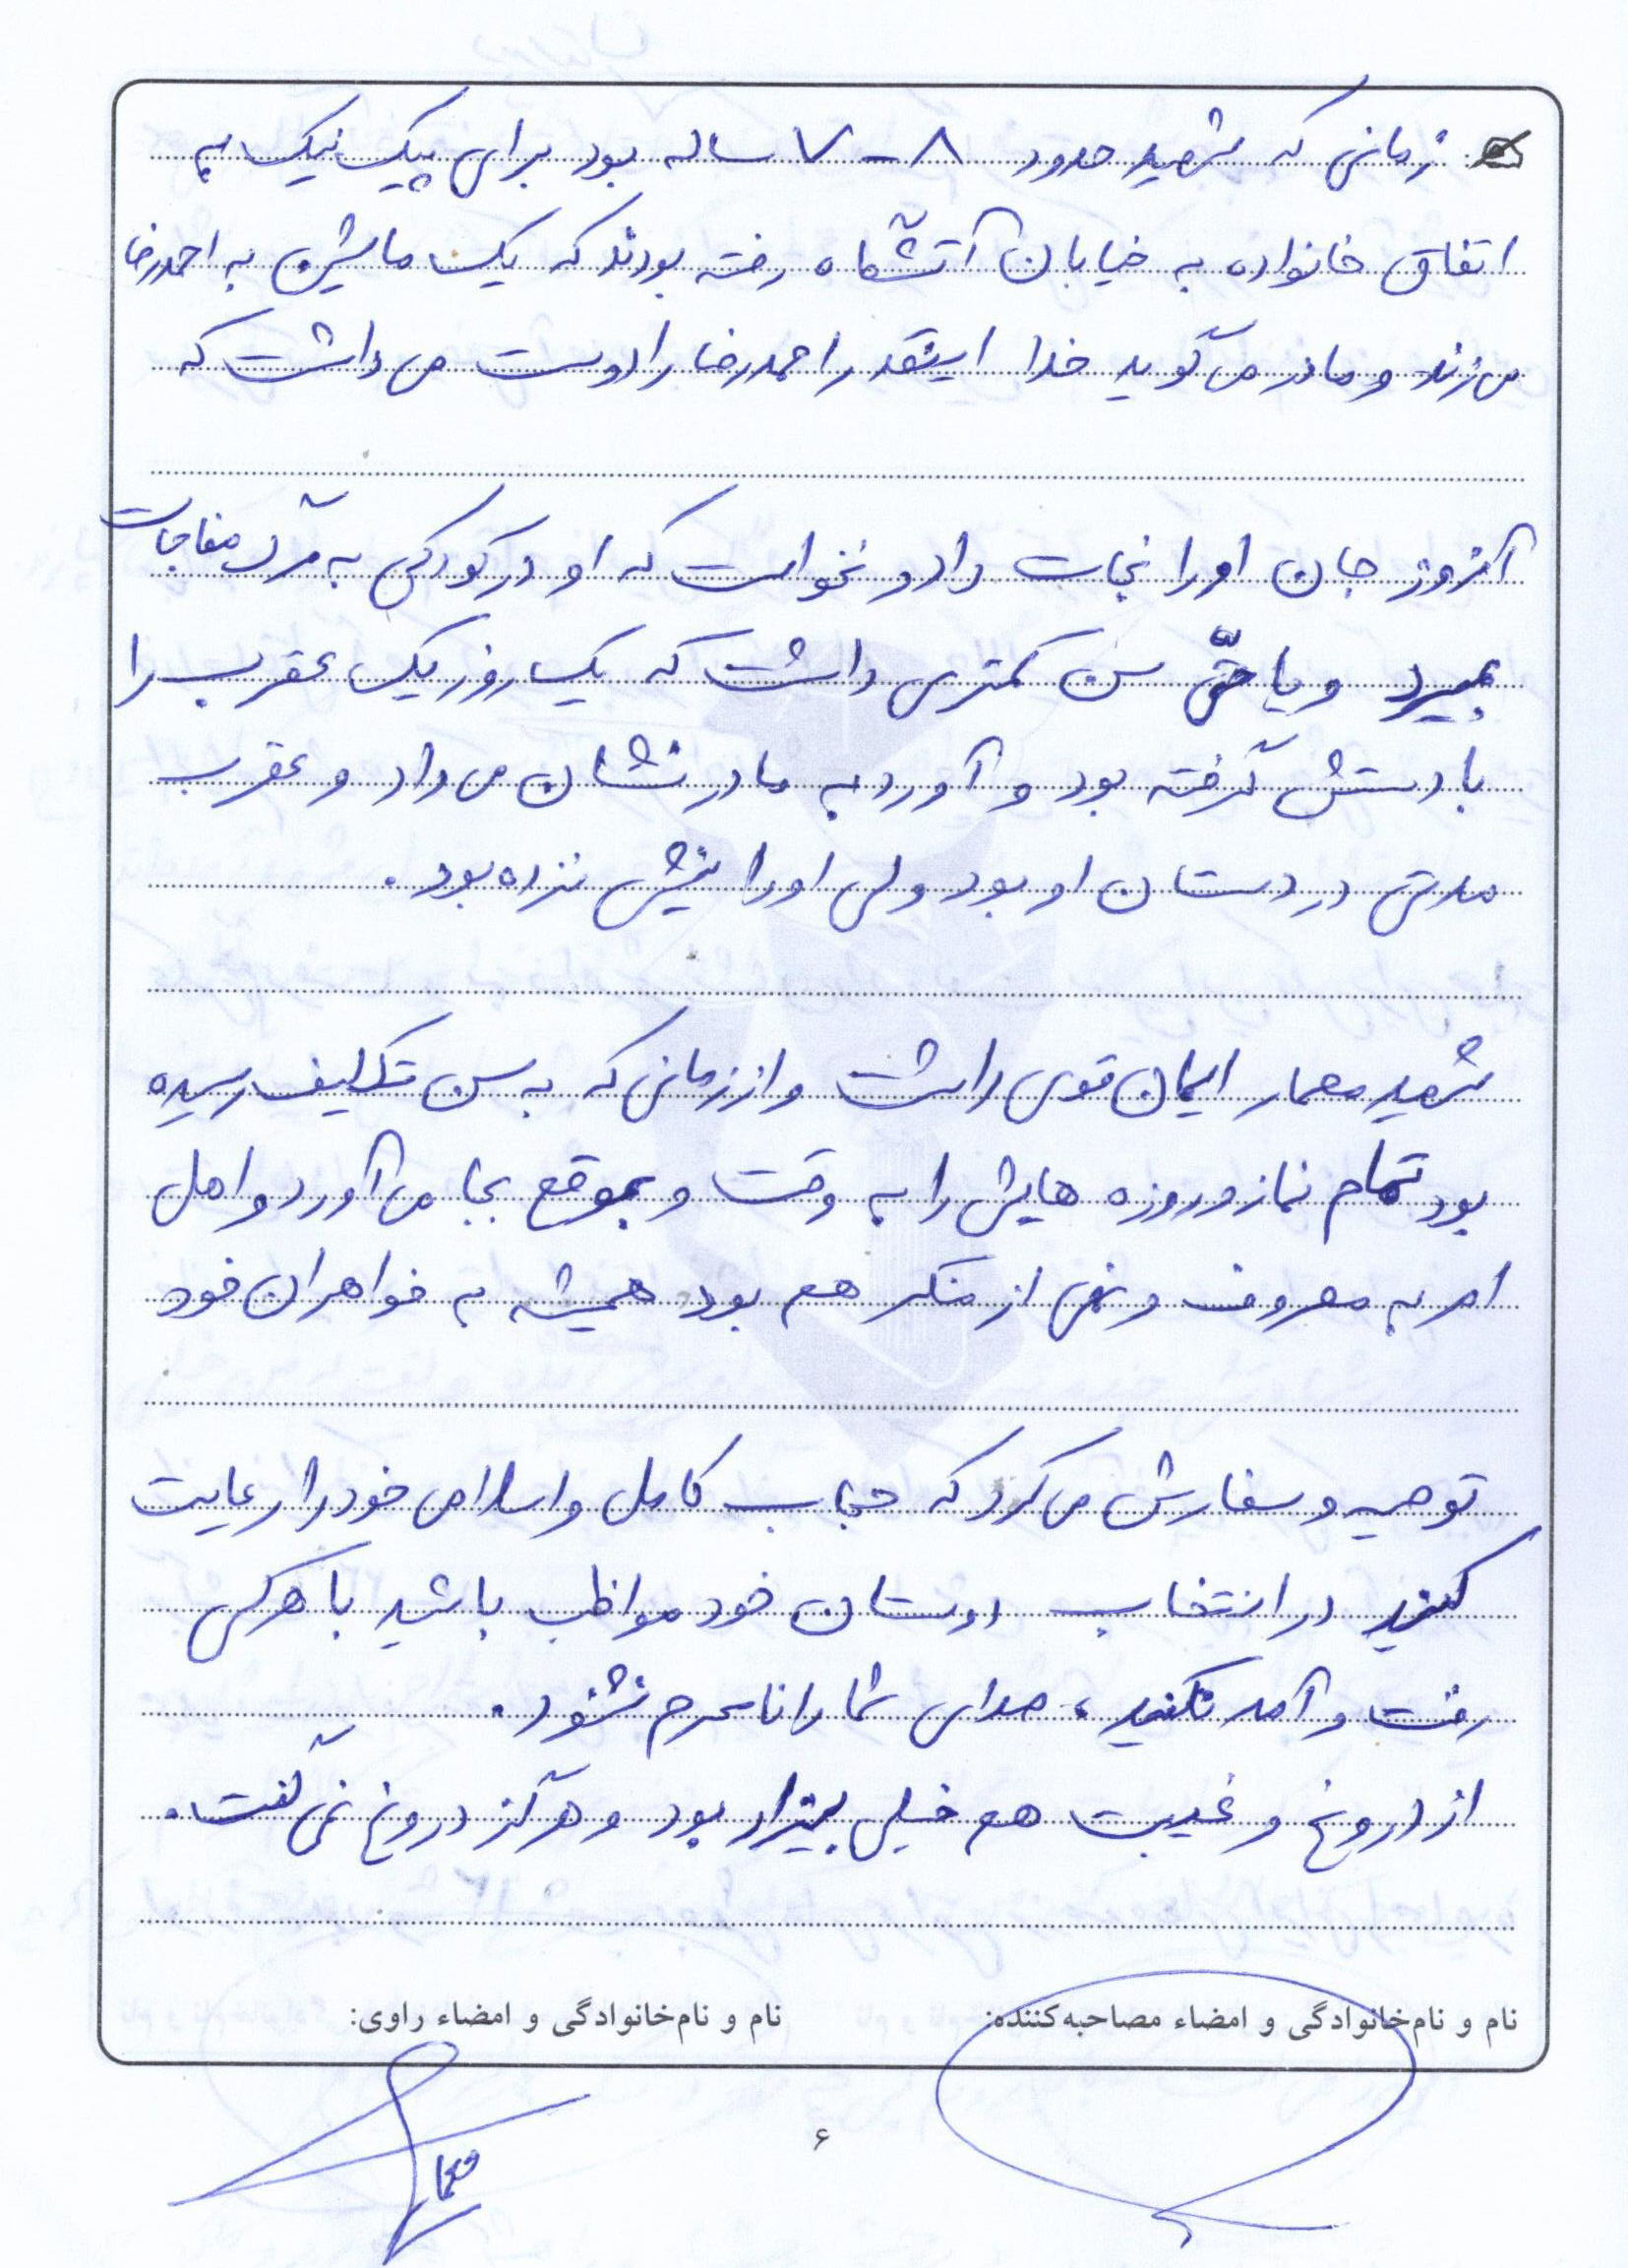 زمانی که شهید حدود ۸-۷ ساله بود برای پیک نیک به
اتفاق خانواده به خیابان آتشگاه رفته بودند که یک ماشین به احمدرضا
می زند و مادر می گوید خدا اینقدر احمدرضا را دوست می داشت که
آنروز جان او را نجات داد و نخواست که او در کودکی به مرگ مفاجات
بمیرد و یا حتّی سن کمتری داشت که یک روز یک عقرب را
با دستش گرفته بود و آورد به مادر نشان می داد و عقرب
مدتی در دستان او بود ولی او را نیش نزده بود.
شهید معمار ایمان قوی داشت و از زمانی که به سن تکلیف رسیده
بود تمام نماز و روزه هایش را به وقت و بموقع بجا می آورد و اهل
امر به معروف و نهی از منکر هم بود همیشه به خواهران خود
توصیه و سفارش می کرد که حجاب کامل و اسلامی خود را رعایت
کنید در انتخاب دوستان خود مواظب باشید با هرکسی
رفت و آمد نکنید، صدای شما را نامحرم نشنود.
از دروغ و غیبت هم خیلی بیزار بود و هرگز دروغ نمی گفت.
نام و نام‌خانوادگی و امضاء مصاحبه‌کننده: نام و نام‌خانوادگی و امضاء راوی:
۶